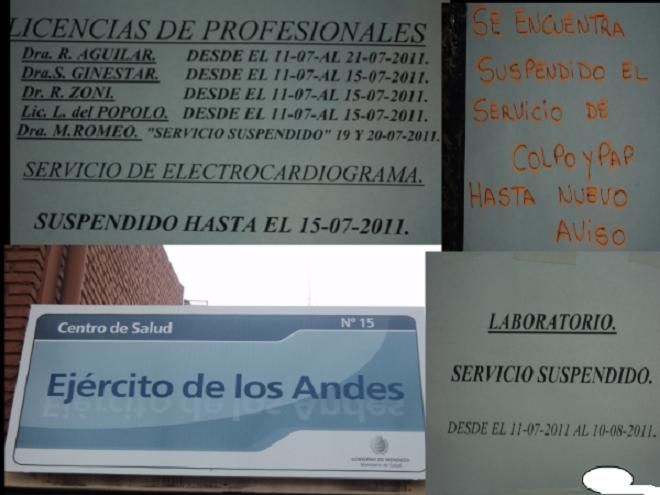 LICENCIAS DE PROFESIONALES
Dra. R. AGUILAR. DESDE EL 11-07-AL 21-07-2011.
Dra.S. GINESTAR. DESDE EL 11-07-AL 15-07-2011.
Dr. R. ZONI. DESDE EL 11-07-AL 15-07-2011.
Lic. L. del POPOLO. DESDE EL 11-07-AL 15-07-2011.
Dra. M.ROMEO. "SERVICIO SUSPENDIDO" 19 Y 20-07-2011.
SERVICIO DE ELECTROCARDIOGRAMA.
SUSPENDIDO HASTA EL 15-07-2011.
SE ENCUENTRA
SUSPENDIDO EL
SERVICIO DE
COLPO Y PAP
HASTA NUEVO
AVISO
Centro de Salud Nº 15
Ejército de los Andes
GOBIERNO DE MENDOZA
Ministerio de Salud
LABORATORIO.
SERVICIO SUSPENDIDO.
DESDE EL 11-07-2011 AL 10-08-2011.